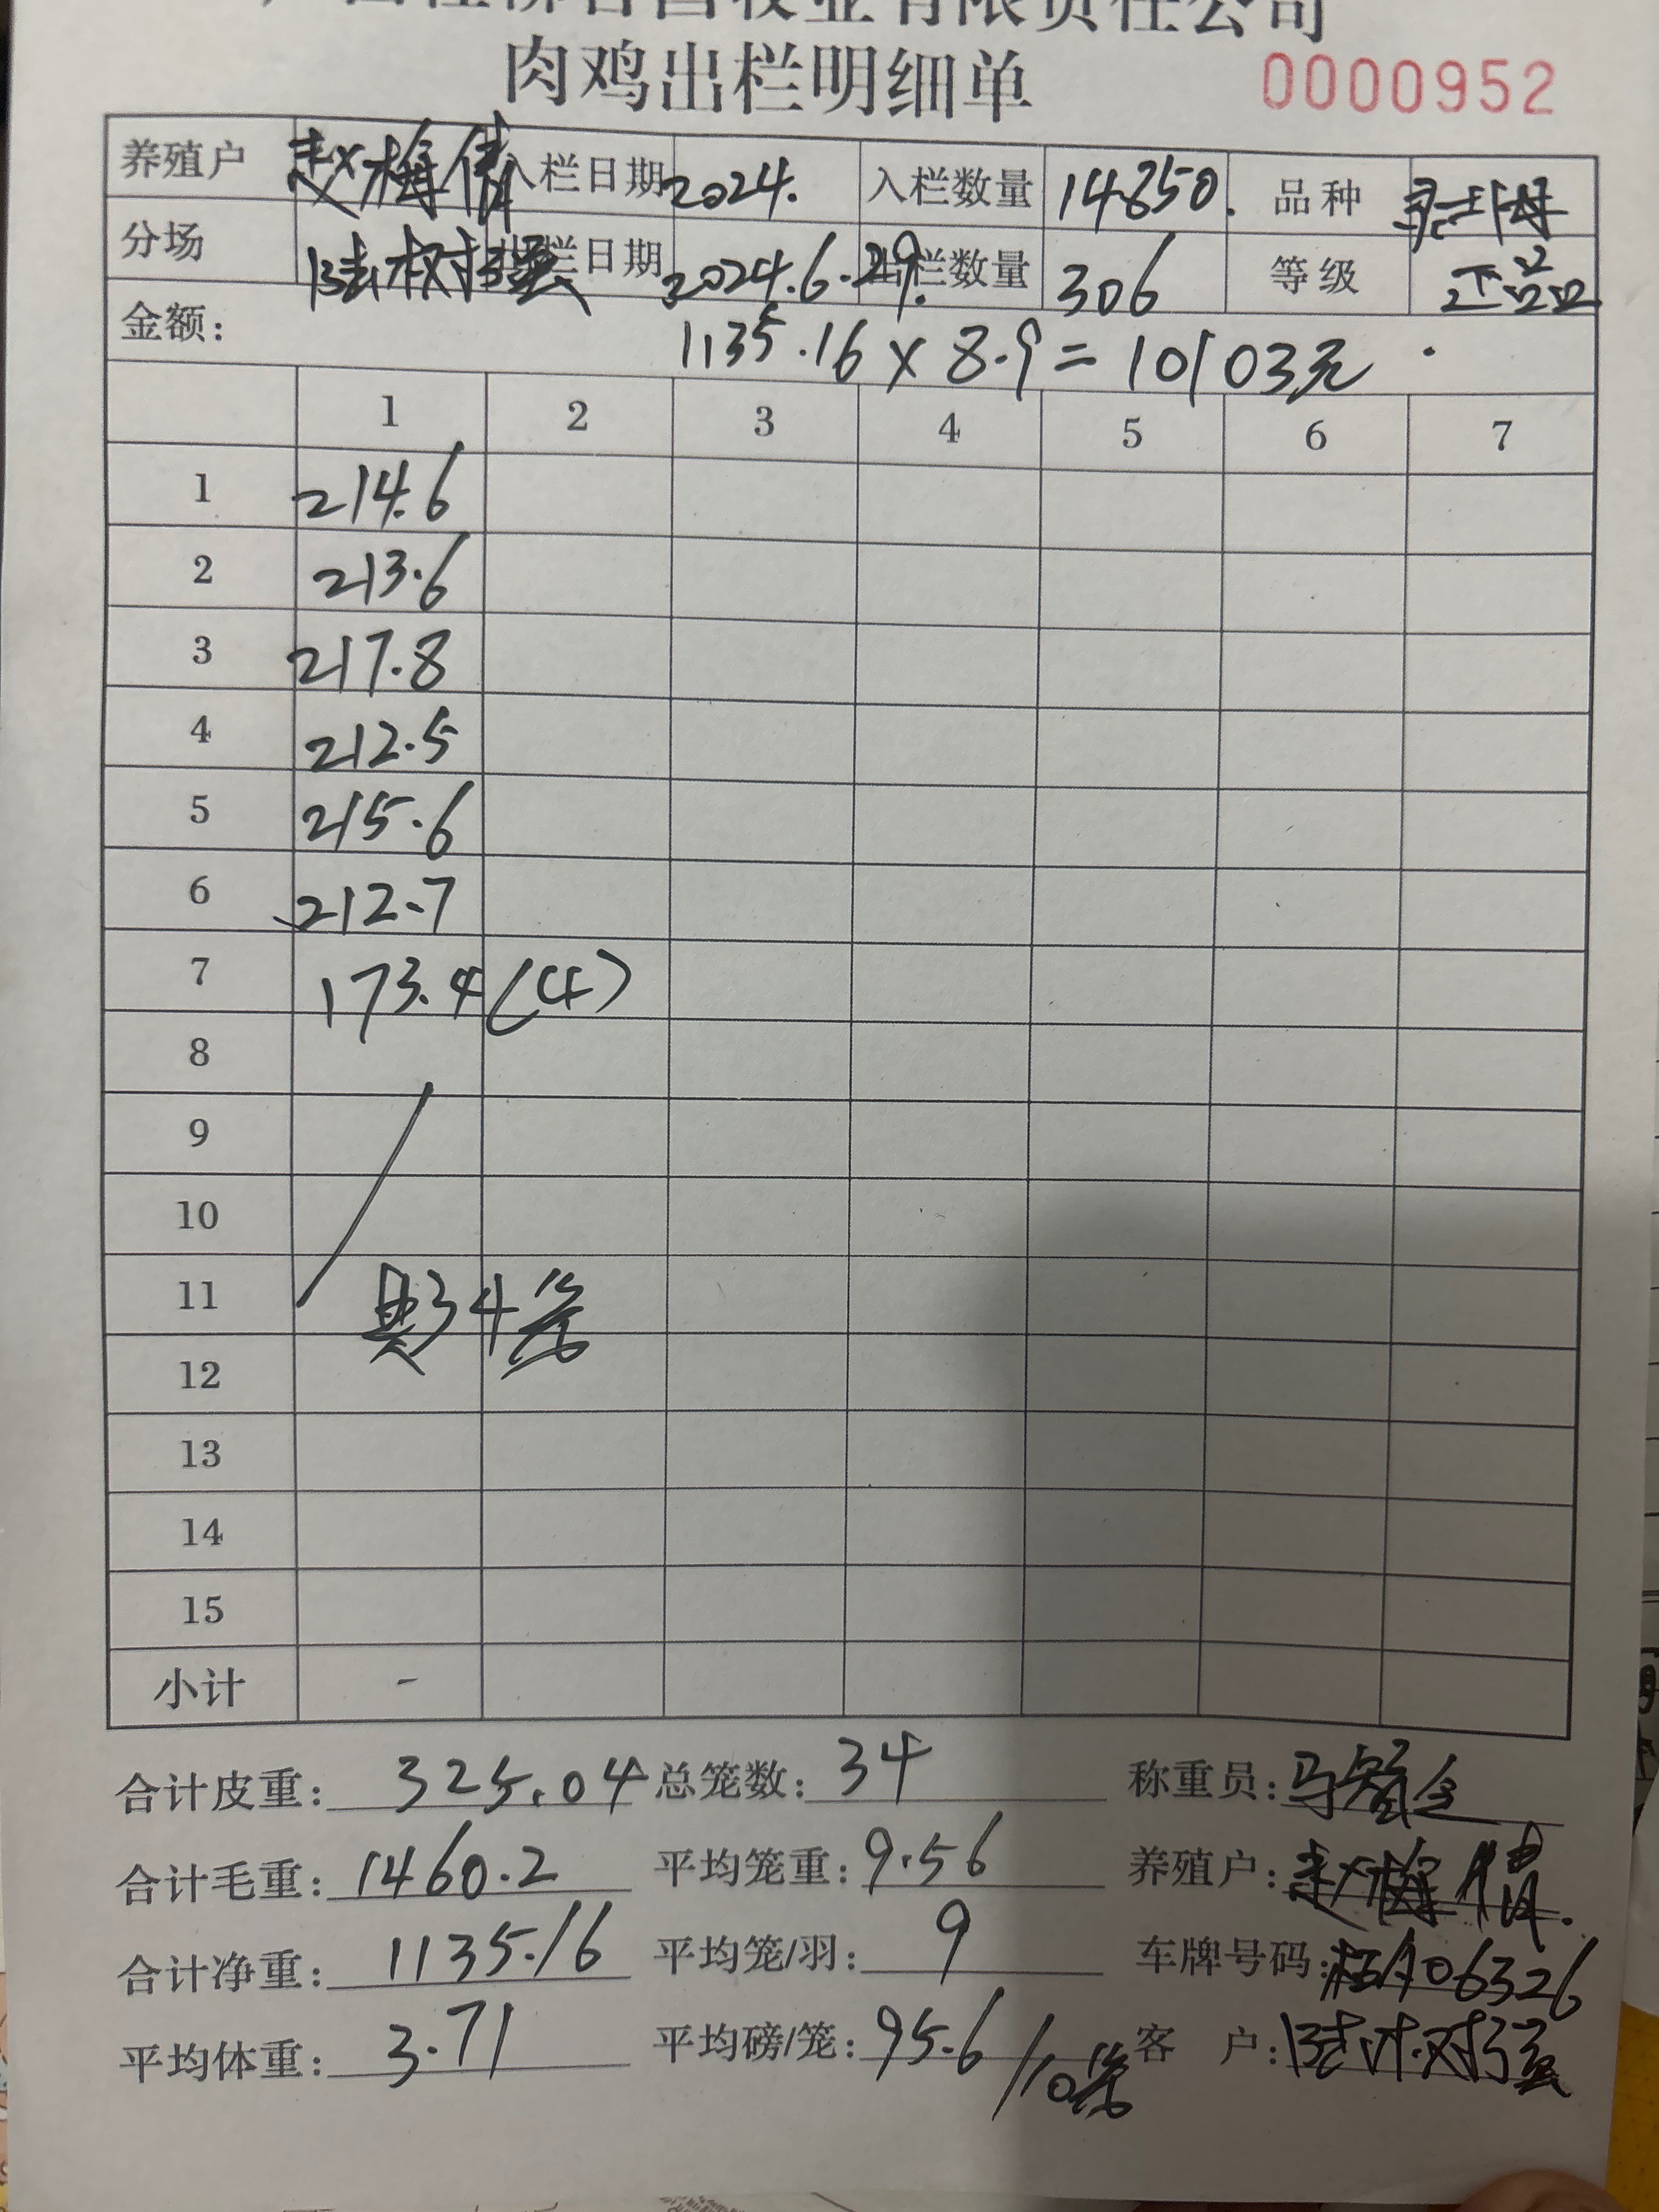 肉鸡出栏明细单 0000952
养殖户 赵梅倩 入栏日期 2024. 入栏数量 14850. 品种
分场 陆树强 出栏日期 2024.6.29. 出栏数量 306 等级 正品
金额: 1135.16 × 8.9 = 10103元.
1 2 3 4 5 6 7
1 214.6
2 213.6
3 217.8
4 212.5
5 215.6
6 212.7
7 173.4 (4)
8
9
10
11 共34笼
12
13
14
15
小计 -
合计皮重: 325.04 总笼数: 34 称重员:
合计毛重: 1460.2 平均笼重: 9.56 养殖户: 赵梅倩.
合计净重: 1135.16 平均笼/羽: 9 车牌号码: 桂A06326
平均体重: 3.71 平均磅/笼: 95.6/10笼 客 户: 陆树强